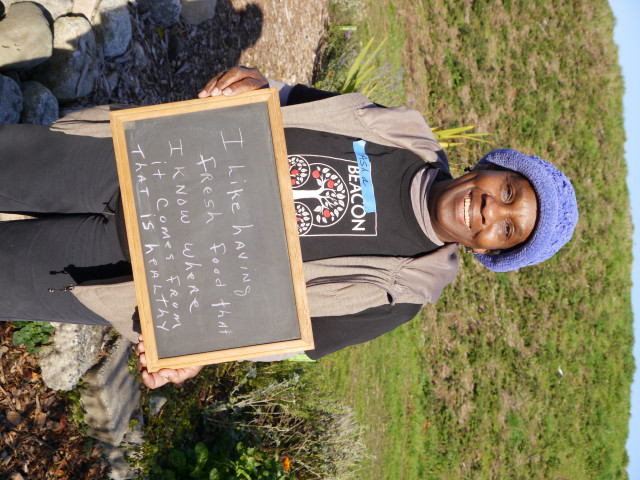 I like having
fresh food that
I know where
it comes from
THAT IS HEALTHY
BEACON